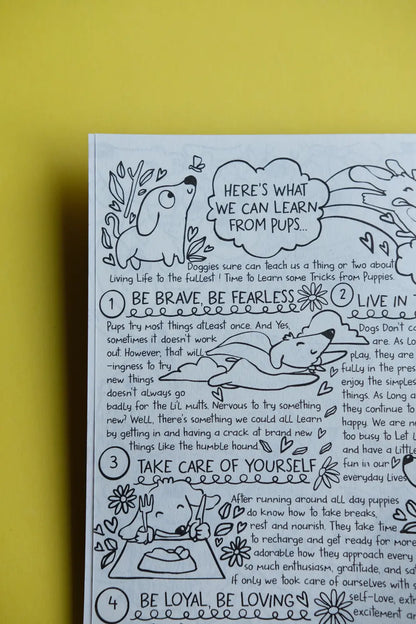 HERE'S WHAT
WE CAN LEARN
FROM PUPS...
Doggies sure can teach us a thing or two about
Living Life to the fullest ! Time to Learn some Tricks from Puppies.
1 BE BRAVE, BE FEARLESS
Pups try most things atleast once. And Yes,
sometimes it doesn't work
out. However, that will
-ingness to try
new things
doesn't always go
badly for the Li'l mutts. Nervous to try something
new? Well, there's something we could all Learn
by getting in and having a crack at brand new
things like the humble hound.
2 LIVE IN
Dogs Don't
are. As Lo
play, they are
fully in the pres
enjoy the simples
things. As Long a
they continue to
happy. We are ne
too busy to Let L
and have a Little
fun in our
everyday Lives
3 TAKE CARE OF YOURSELF
After running around all day puppies
do know how to take breaks,
rest and nourish. They take time
to recharge and get ready for more
adorable how they approach every
so much enthusiasm, gratitude, and sat
If only we took care of ourselves with s
self-Love, extr
excitement an
4 BE LOYAL, BE LOVING